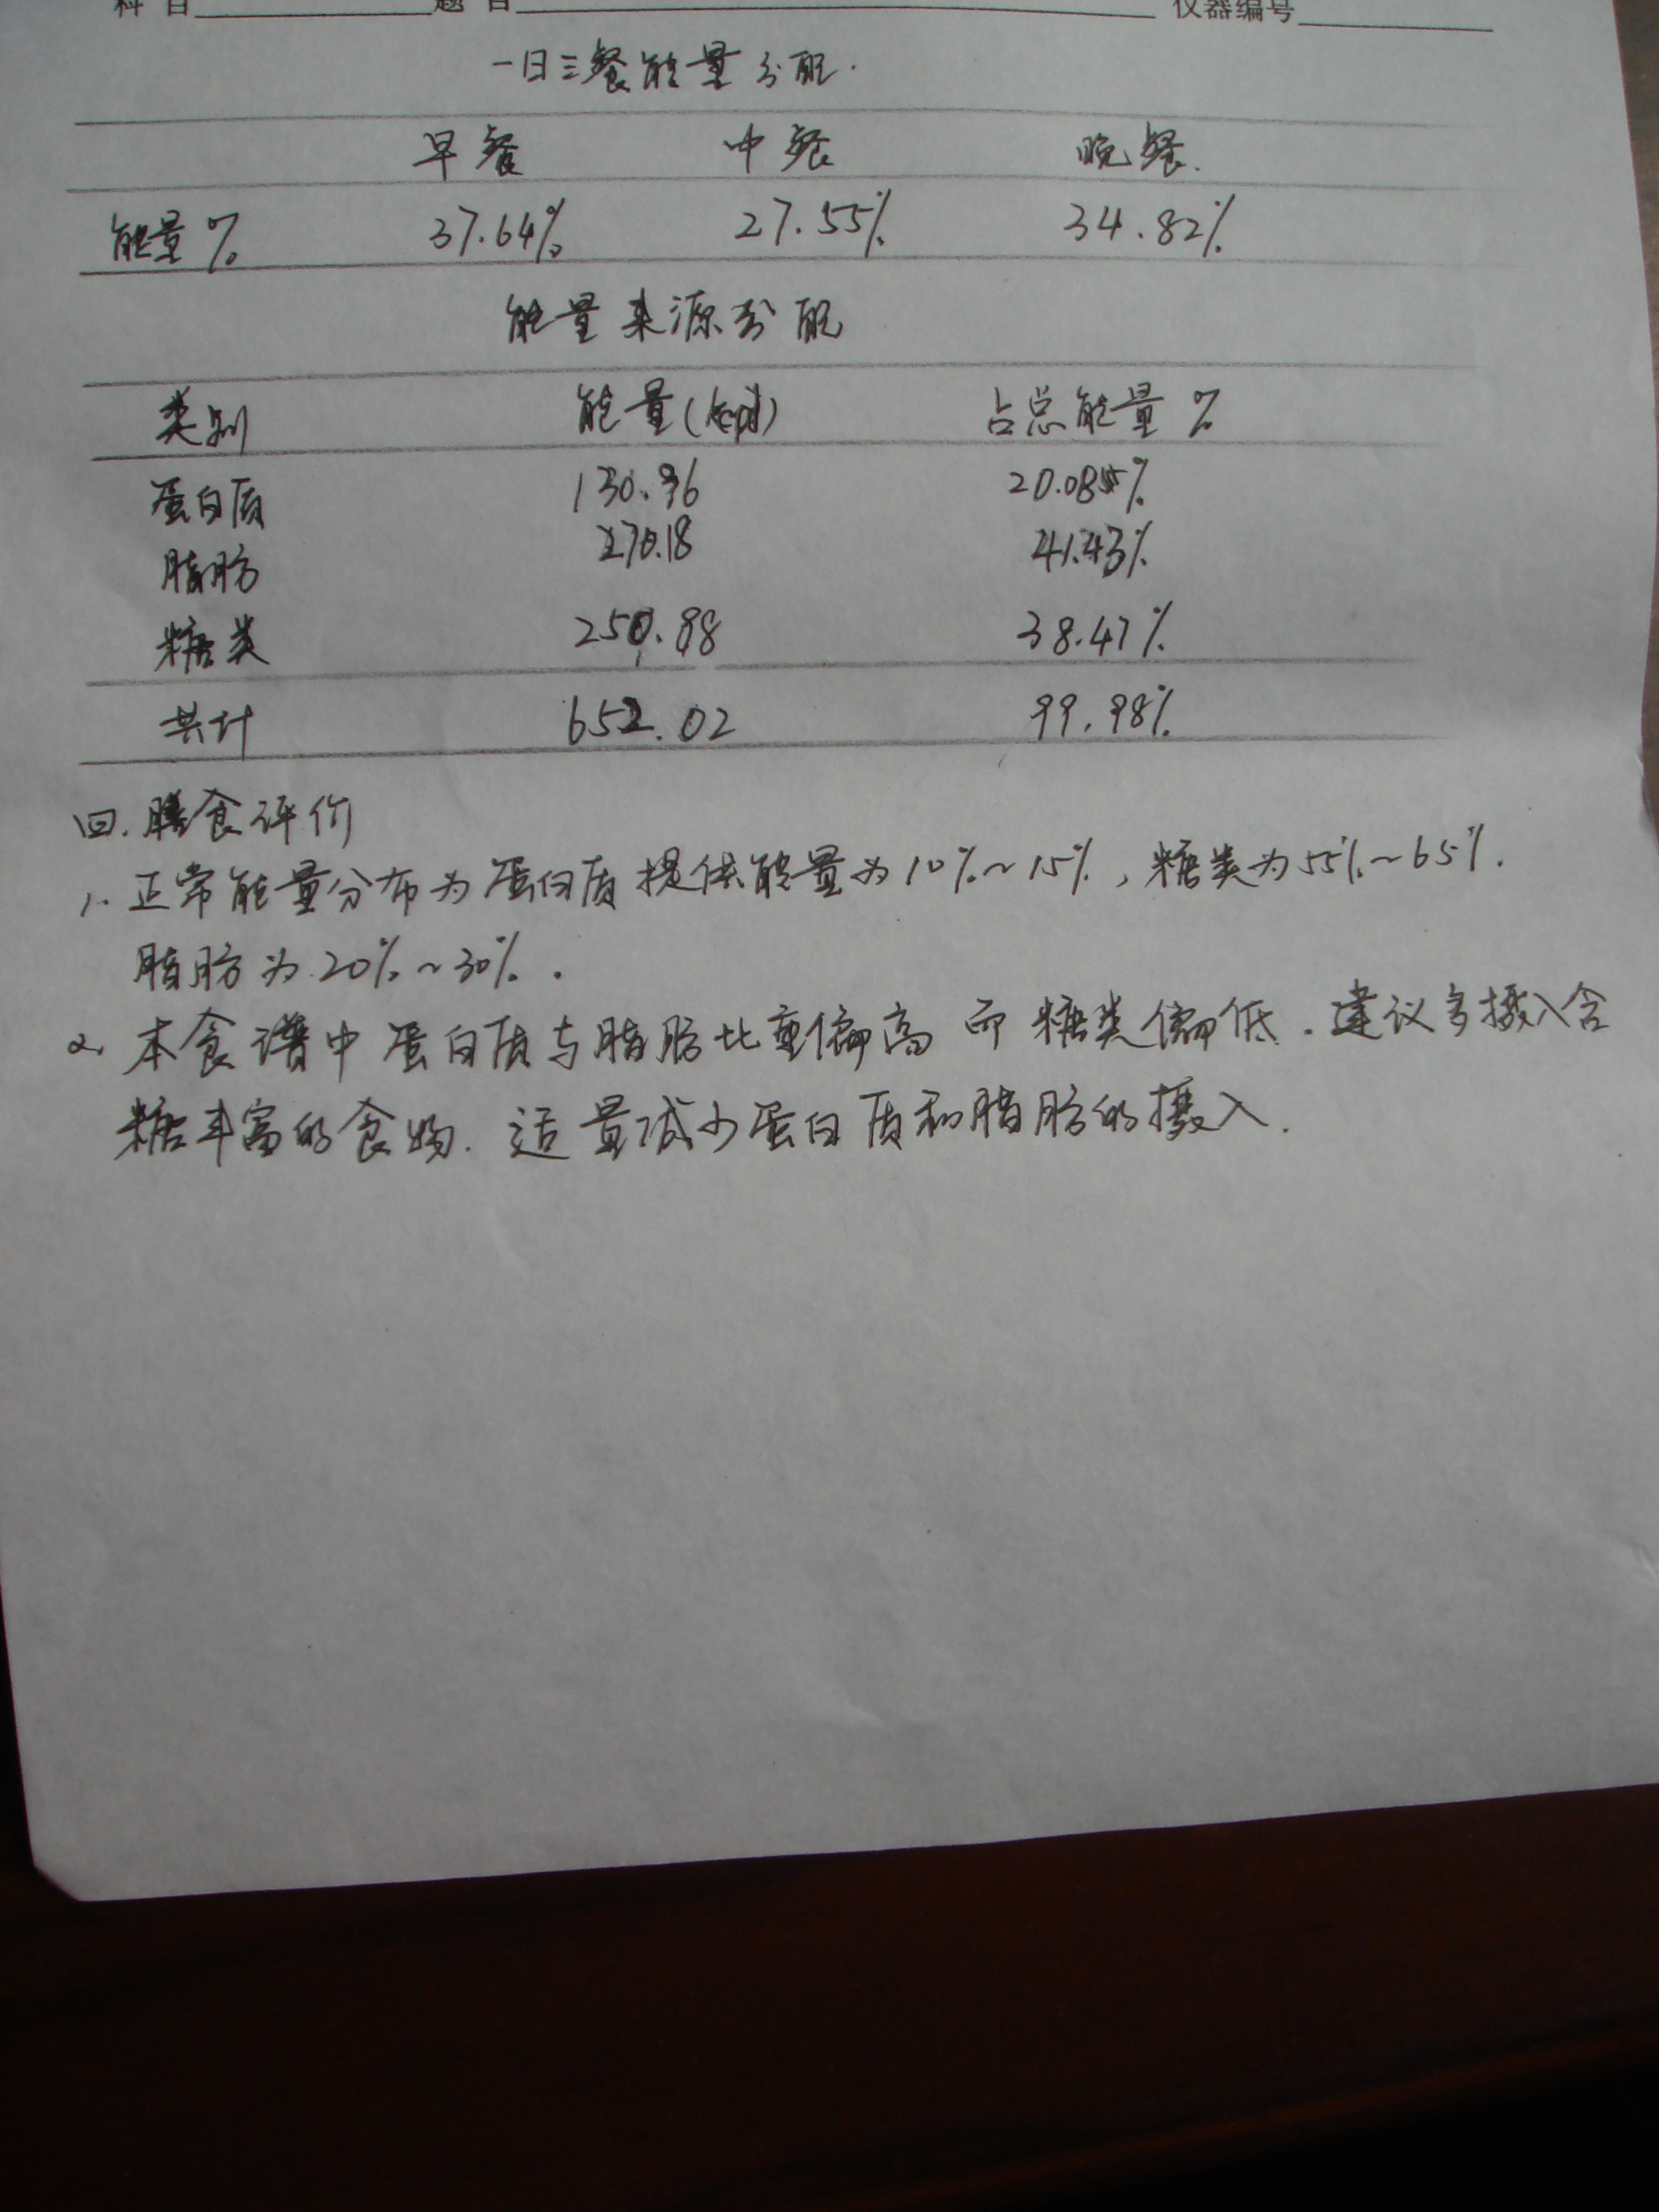 科目 题目 仪器编号
一日三餐能量分配.
早餐 中餐 晚餐.
能量% 37.64% 27.55% 34.82%
能量来源分配
类别 能量(kcal) 占总能量%
蛋白质 130.96 20.085%
脂肪 270.18 41.43%
糖类 250.88 38.47%
共计 652.02 99.98%
四.膳食评价
1.正常能量分布为蛋白质提供能量为10%~15%,糖类为55%~65%.
脂肪为20%~30%.
2.本食谱中蛋白质与脂肪比重偏高而糖类偏低.建议多摄入含
糖丰富的食物.适量减少蛋白质和脂肪的摄入.